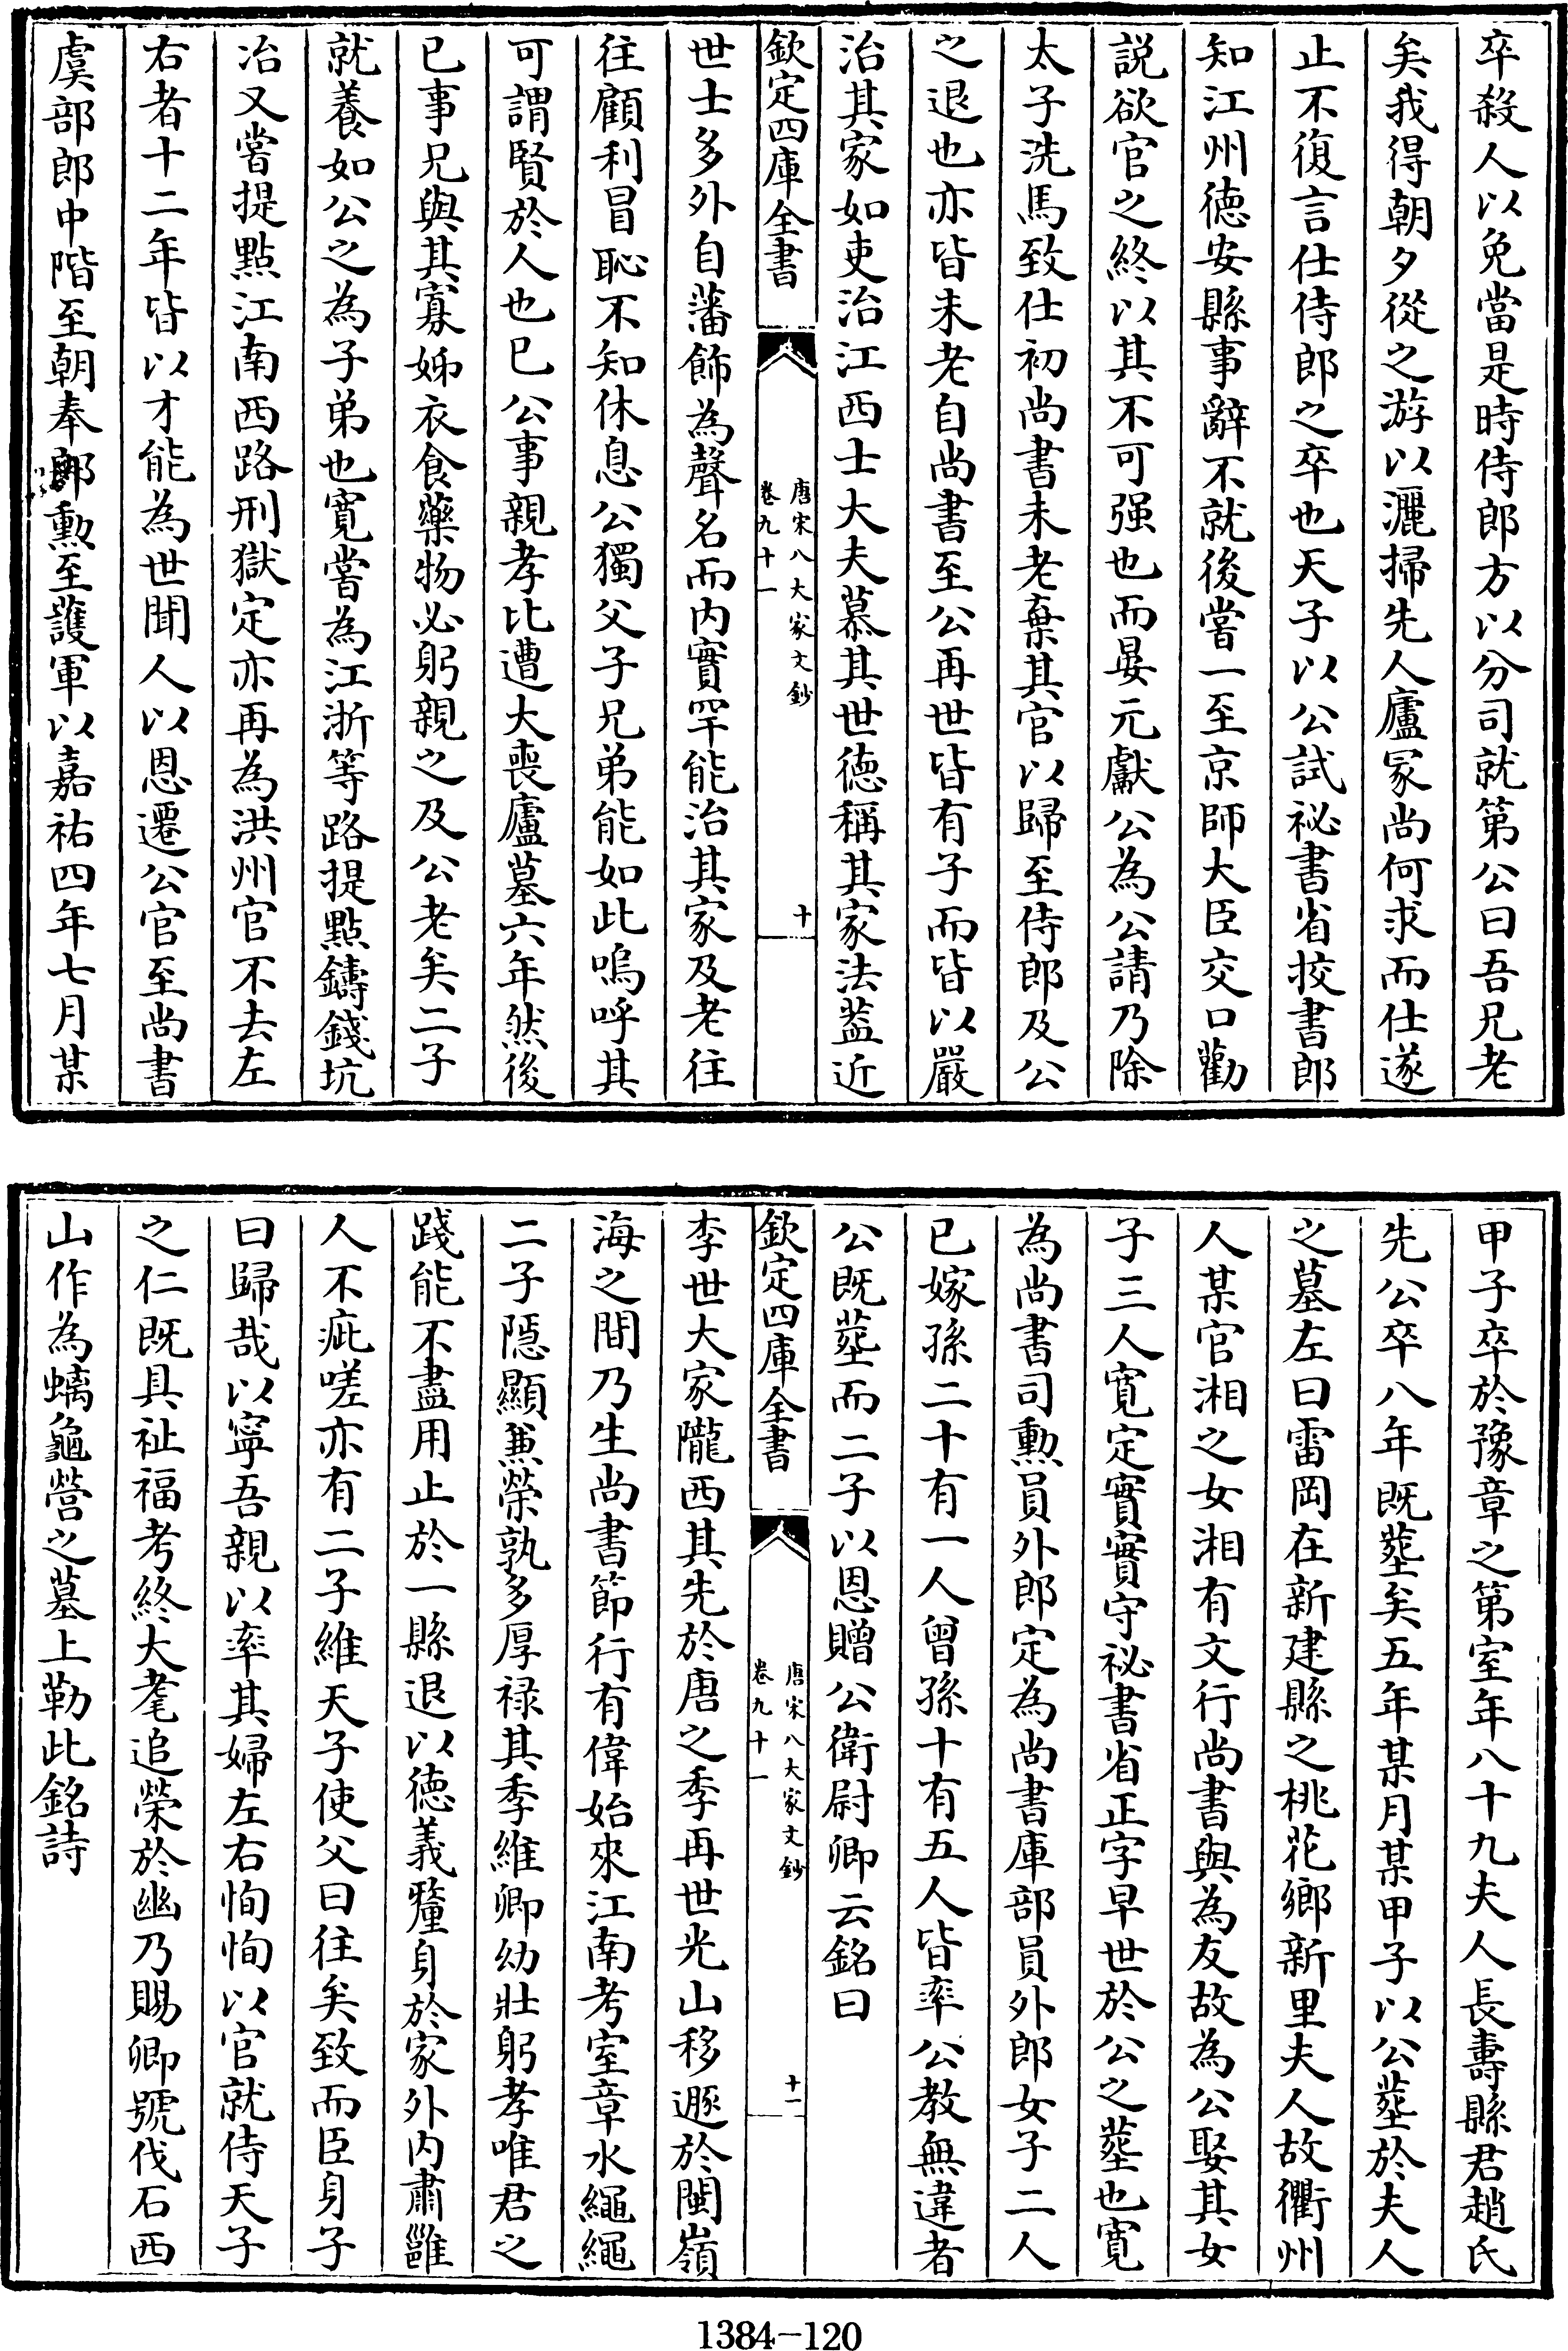 卒殺人以免當是時侍郎方以分司就第公曰吾兄老
矣我得朝夕從之游以灑掃先人廬冢尚何求而仕遂
止不復言仕侍郎之卒也天子以公試祕書省挍書郎
知江州德安縣事辭不就後嘗一至京師大臣交口勸
説欲官之終以其不可强也而晏元獻公為公請乃除
太子洗馬致仕初尚書未老棄其官以歸至侍郎及公
之退也亦皆未老自尚書至公再世皆有子而皆以嚴
治其家如吏治江西士大夫慕其世德稱其家法葢近
欽定四庫全書
唐宋八大家文鈔
卷九十一
十
世士多外自藩飾為聲名而内實罕能治其家及老往
往顧利冒恥不知休息公獨父子兄弟能如此嗚呼其
可謂賢於人也已公事親孝比遭大喪廬墓六年然後
已事兄與其寡姊衣食藥物必躬親之及公老矣二子
就養如公之為子弟也寛嘗為江浙等路提點鑄錢坑
冶又嘗提點江南西路刑獄定亦再為洪州官不去左
右者十二年皆以才能為世聞人以恩遷公官至尚書
虞部郎中階至朝奉郎勲至護軍以嘉祐四年七月某
甲子卒於豫章之第室年八十九夫人長壽縣君趙氏
先公卒八年既塟矣五年某月某甲子以公塟於夫人
之墓左曰雷岡在新建縣之桃花鄉新里夫人故衢州
人某官湘之女湘有文行尚書與為友故為公娶其女
子三人寛定實實守祕書省正字早世於公之塟也寛
為尚書司勲員外郎定為尚書庫部員外郎女子二人
已嫁孫二十有一人曾孫十有五人皆率公教無違者
公既塟而二子以恩贈公衛尉卿云銘曰
欽定四庫全書
唐宋八大家文鈔
卷九十一
十一
李世大家隴西其先於唐之季再世光山移遯於閩嶺
海之間乃生尚書節行有偉始來江南考室章水繩繩
二子隱顯兼榮孰多厚祿其季維卿幼壯躬孝唯君之
踐能不盡用止於一縣退以德義釐身於家外内肅雝
人不疵嗟亦有二子維天子使父曰往矣致而臣身子
曰歸哉以寧吾親以率其婦左右恂恂以官就侍天子
之仁既具祉福考終大耄追榮於幽乃賜卿號伐石西
山作為螭龜營之墓上勒此銘詩
1384-120